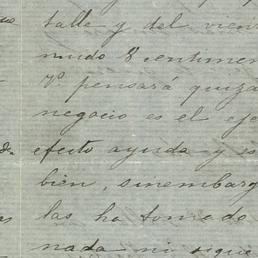 talle y del vien
mudo 8 centimen
7º pensará quiza
negocio es el eje
efecto ayuda y es
bien, sinembarg
las ha tomado
nada ni sigue